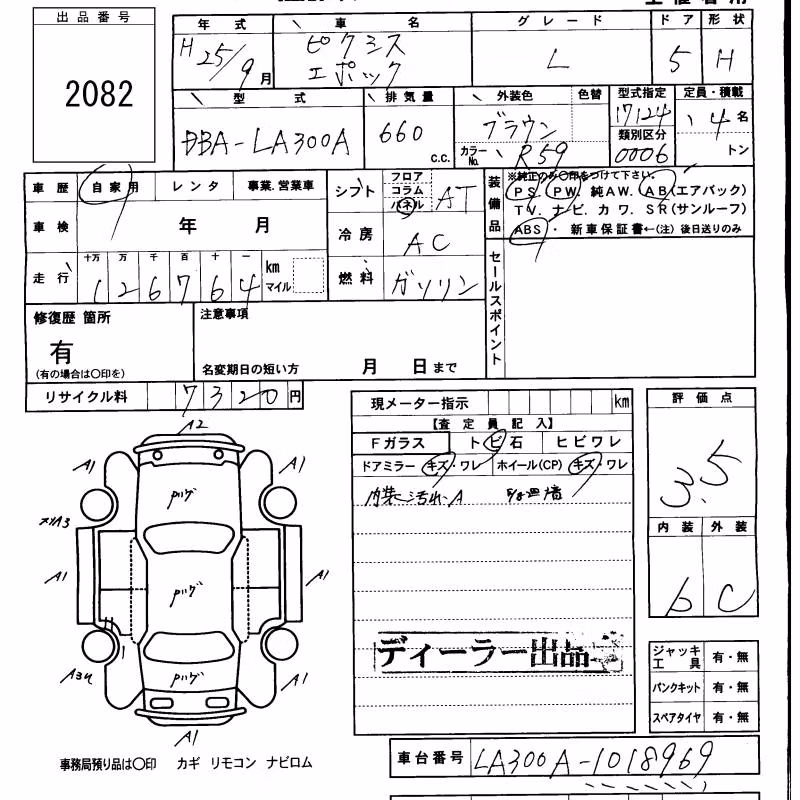 出品番号
2082
年式 車名 グレード ドア 形状
H25/9月 ピクシス エポック L 5 H
型式 排気量 外装色 色替 型式指定 定員・積載
DBA-LA300A 660 c.c. ブラウン 17124 4名
カラーNo. R59 類別区分 0006 トン
車歴 自家用 レンタ 事業.営業車
シフト フロア コラム パネル AT
装備品 ※純正のみ〇印をつけて下さい.
PS. PW. 純AW. AB(エアバック)
TV. ナビ. カワ. SR(サンルーフ)
ABS・ 新車保証書←(注) 後日送りのみ
車検 年 月
冷房 AC
走行 十万 万 千 百 十 一 km マイル
126764
燃料 ガソリン
セールスポイント
修復歴 箇所
有
(有の場合は〇印を)
注意事項
名変期日の短い方 月 日まで
リサイクル料 7320円
現メーター指示 km
【査定員記入】
Fガラス トビ石 ヒビワレ
ドアミラー キズ・ワレ ホイール(CP) キズ・ワレ
内装汚れA
評価点
3.5
内装 外装
b C
A2
A1 A1
A3
A1 A1
A1
A1
ディーラー出品
ジャッキ 工具 有・無
パンクキット 有・無
スペアタイヤ 有・無
事務局預り品は〇印 カギ リモコン ナビロム
車台番号 LA300A-1018969